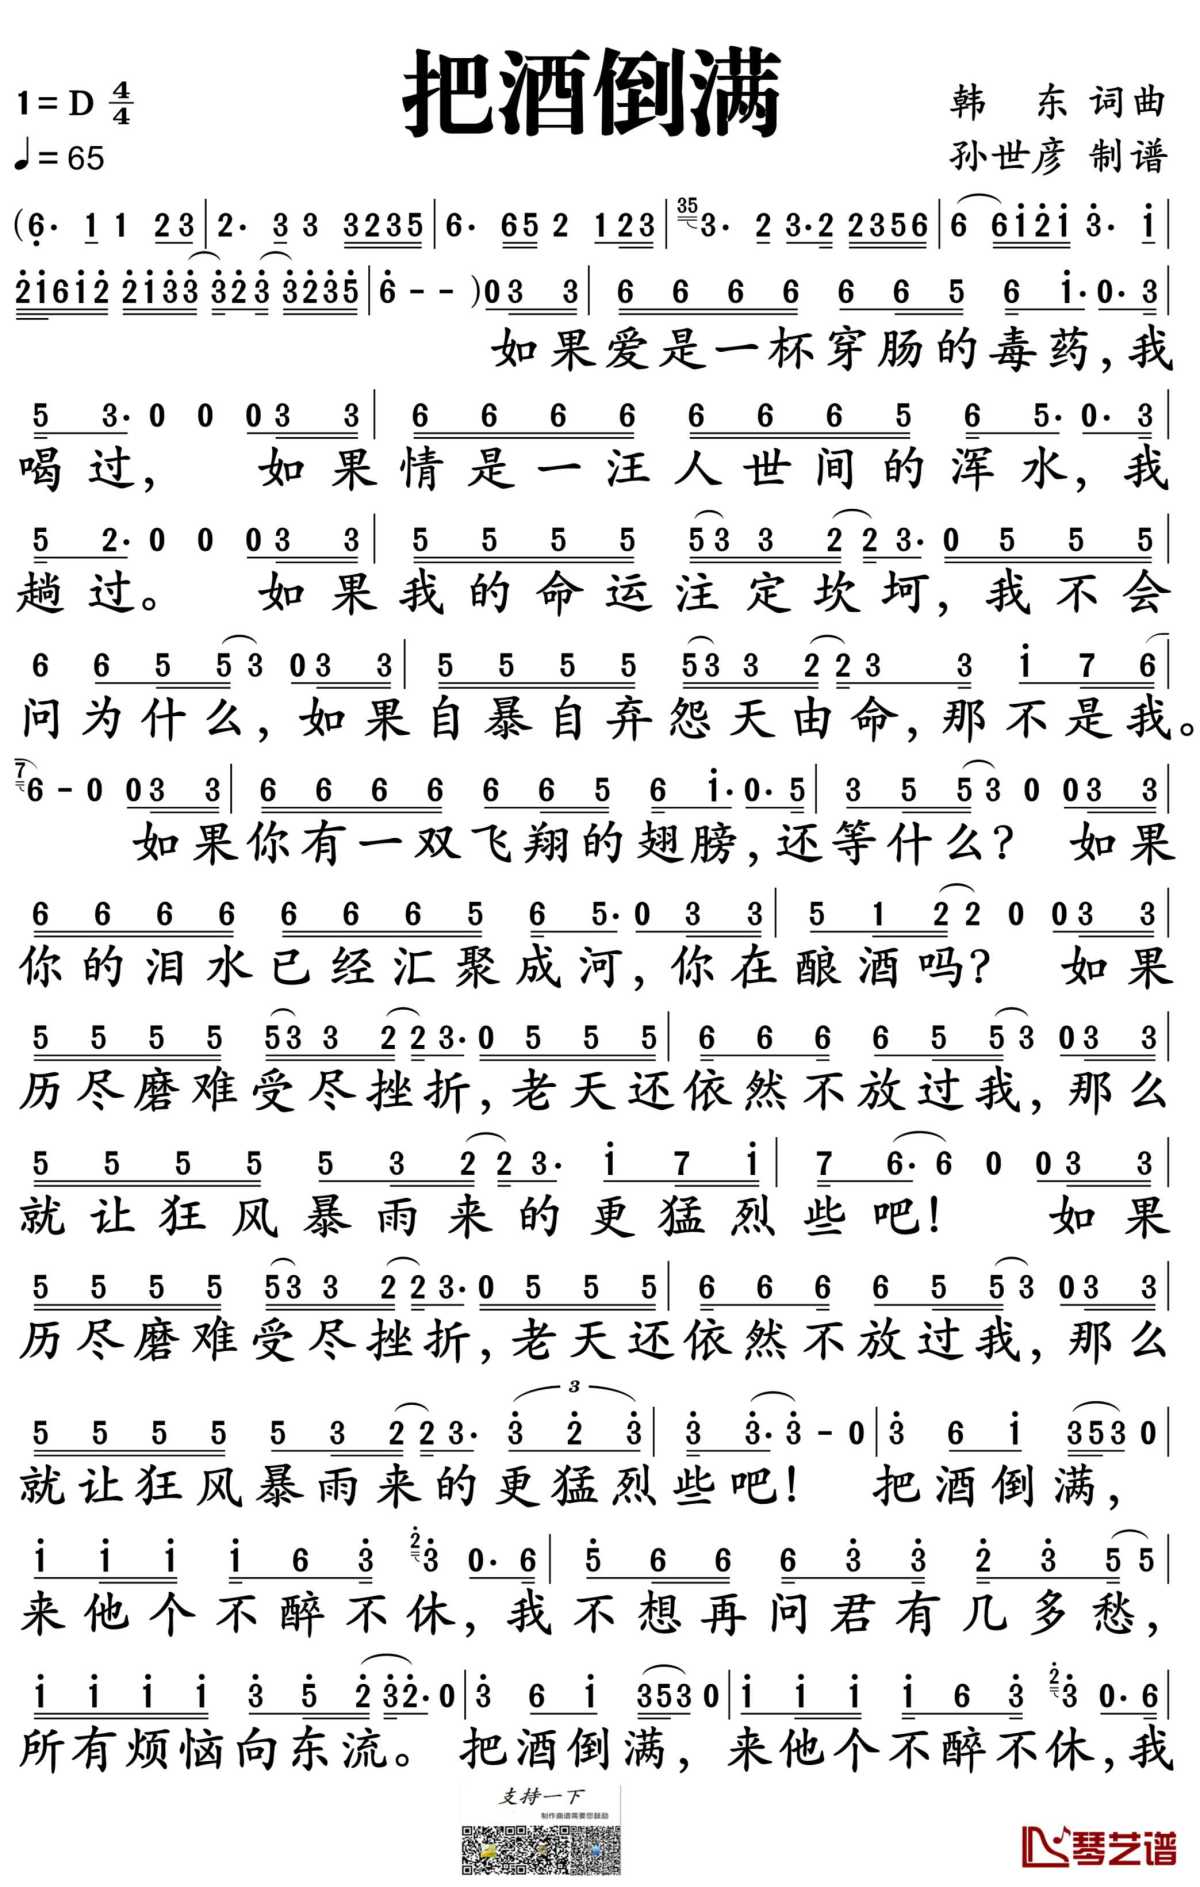 把酒倒满
1=D 4/4
韩 东 词曲
♩=65
孙世彦 制谱
(6. 1 1 2 3 | 2. 3 3 3235 | 6. 65 2 1 23 | 35 3. 2 3.2 2356 | 6 6i2i 3. i |
2i6i2 2i33 323 3235 | 6 - - )0 3 3 | 6 6 6 6 6 6 5 6 i. 0. 3 |
如果爱是一杯穿肠的毒药,我
5 3. 0 0 0 3 3 | 6 6 6 6 6 6 6 5 6 5. 0. 3 |
喝过, 如果情是一汪人世间的浑水,我
5 2. 0 0 0 3 3 | 5 5 5 5 53 3 2 2 3. 0 5 5 5 |
趟过。 如果我的命运注定坎坷,我不会
6 6 5 5 3 0 3 3 | 5 5 5 5 53 3 2 2 3 3 i 7 6 |
问为什么,如果自暴自弃怨天由命,那不是我。
7 6 - 0 0 3 3 | 6 6 6 6 6 6 5 6 i. 0. 5 | 3 5 5 3 0 0 3 3 |
如果你有一双飞翔的翅膀,还等什么? 如果
6 6 6 6 6 6 6 5 6 5. 0 3 3 | 5 1 2 2 0 0 3 3 |
你的泪水已经汇聚成河,你在酿酒吗? 如果
5 5 5 5 53 3 2 2 3. 0 5 5 5 | 6 6 6 6 5 5 3 0 3 3 |
历尽磨难受尽挫折,老天还依然不放过我,那么
5 5 5 5 5 3 2 2 3. i 7 i | 7 6. 6 0 0 3 3 |
就让狂风暴雨来的更猛烈些吧! 如果
5 5 5 5 53 3 2 2 3. 0 5 5 5 | 6 6 6 6 5 5 3 0 3 3 |
历尽磨难受尽挫折,老天还依然不放过我,那么
3
5 5 5 5 5 3 2 2 3. 3 2 3 | 3 3. 3 - 0 | 3 6 i 353 0 |
就让狂风暴雨来的更猛烈些吧! 把酒倒满,
i i i i 6 3 2 3 0. 6 | 5 6 6 6 3 3 2 3 5 5 |
来他个不醉不休,我不想再问君有几多愁,
i i i i 3 5 2 32. 0 | 3 6 i 353 0 | i i i i 6 3 2 3 0. 6 |
所有烦恼向东流。 把酒倒满,来他个不醉不休,我
支持一下
制作曲谱需要您鼓励
琴艺谱